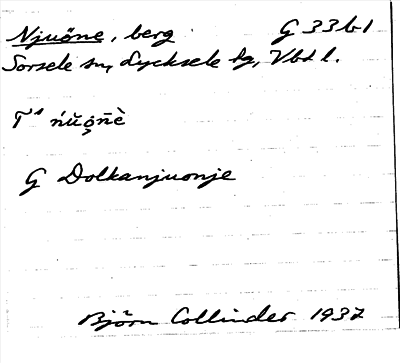 Njuöne, berg G 33 b 1
Sorsele sn, Lycksele lg, Vbtl.
T¹ ńŭō̰n̄è
G Dolkanjuonje
Björn Collinder 1937